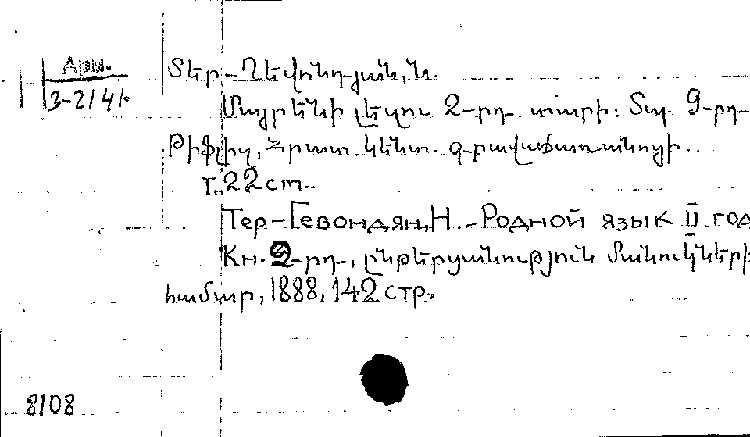 Арм.
3-2141
Տեր-Ղևոնդյան, Ն.
Մայրենի լեզու 2-րդ տարի: Տպ. 9-րդ
Թիֆլիզ, Հրատ. Կենտ. գրավաճառանոցի.
т. 22 см.
Тер-Гевондян, Н. - Родной язык II год
Кн. 2-րդ, ընթերցանություն մանուկների
համար, 1888, 142 стр.
8108